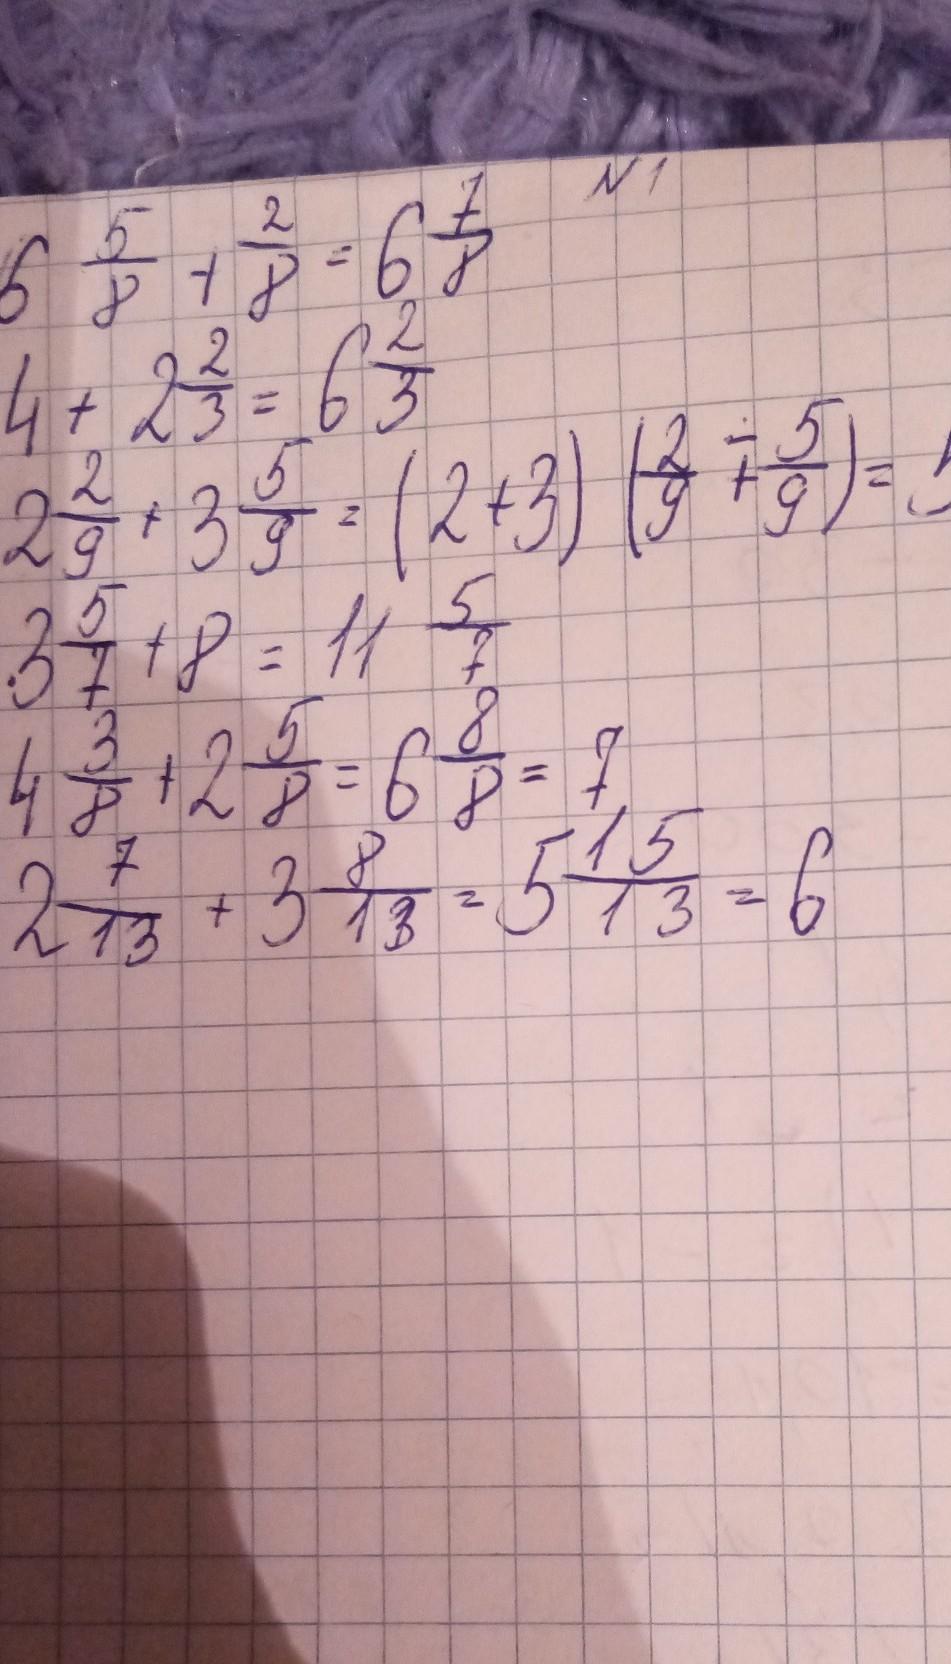 N 1
6 5/8 + 2/8 = 6 7/8
4 + 2 2/3 = 6 2/3
2 2/9 + 3 5/9 = (2+3) (2/9 + 5/9) =
3 5/7 + 8 = 11 5/7
4 3/8 + 2 5/8 = 6 8/8 = 7
2 7/13 + 3 8/13 = 5 15/13 = 6